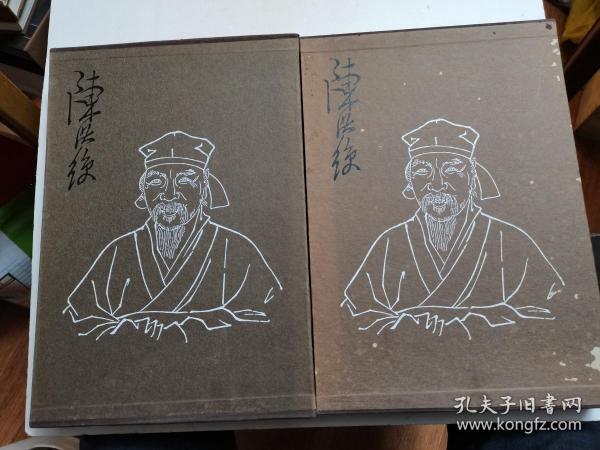 陳洪綬
陳洪綬
孔夫子旧書网
www.kongfz.com